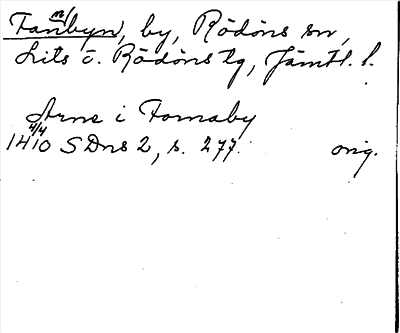 Tanbyn, by, Rödöns sn,
Lits o. Rödöns tg, Jämtl. l.
Arne i Tomaby
4/4
1410 SDns 2, s. 277. orig.